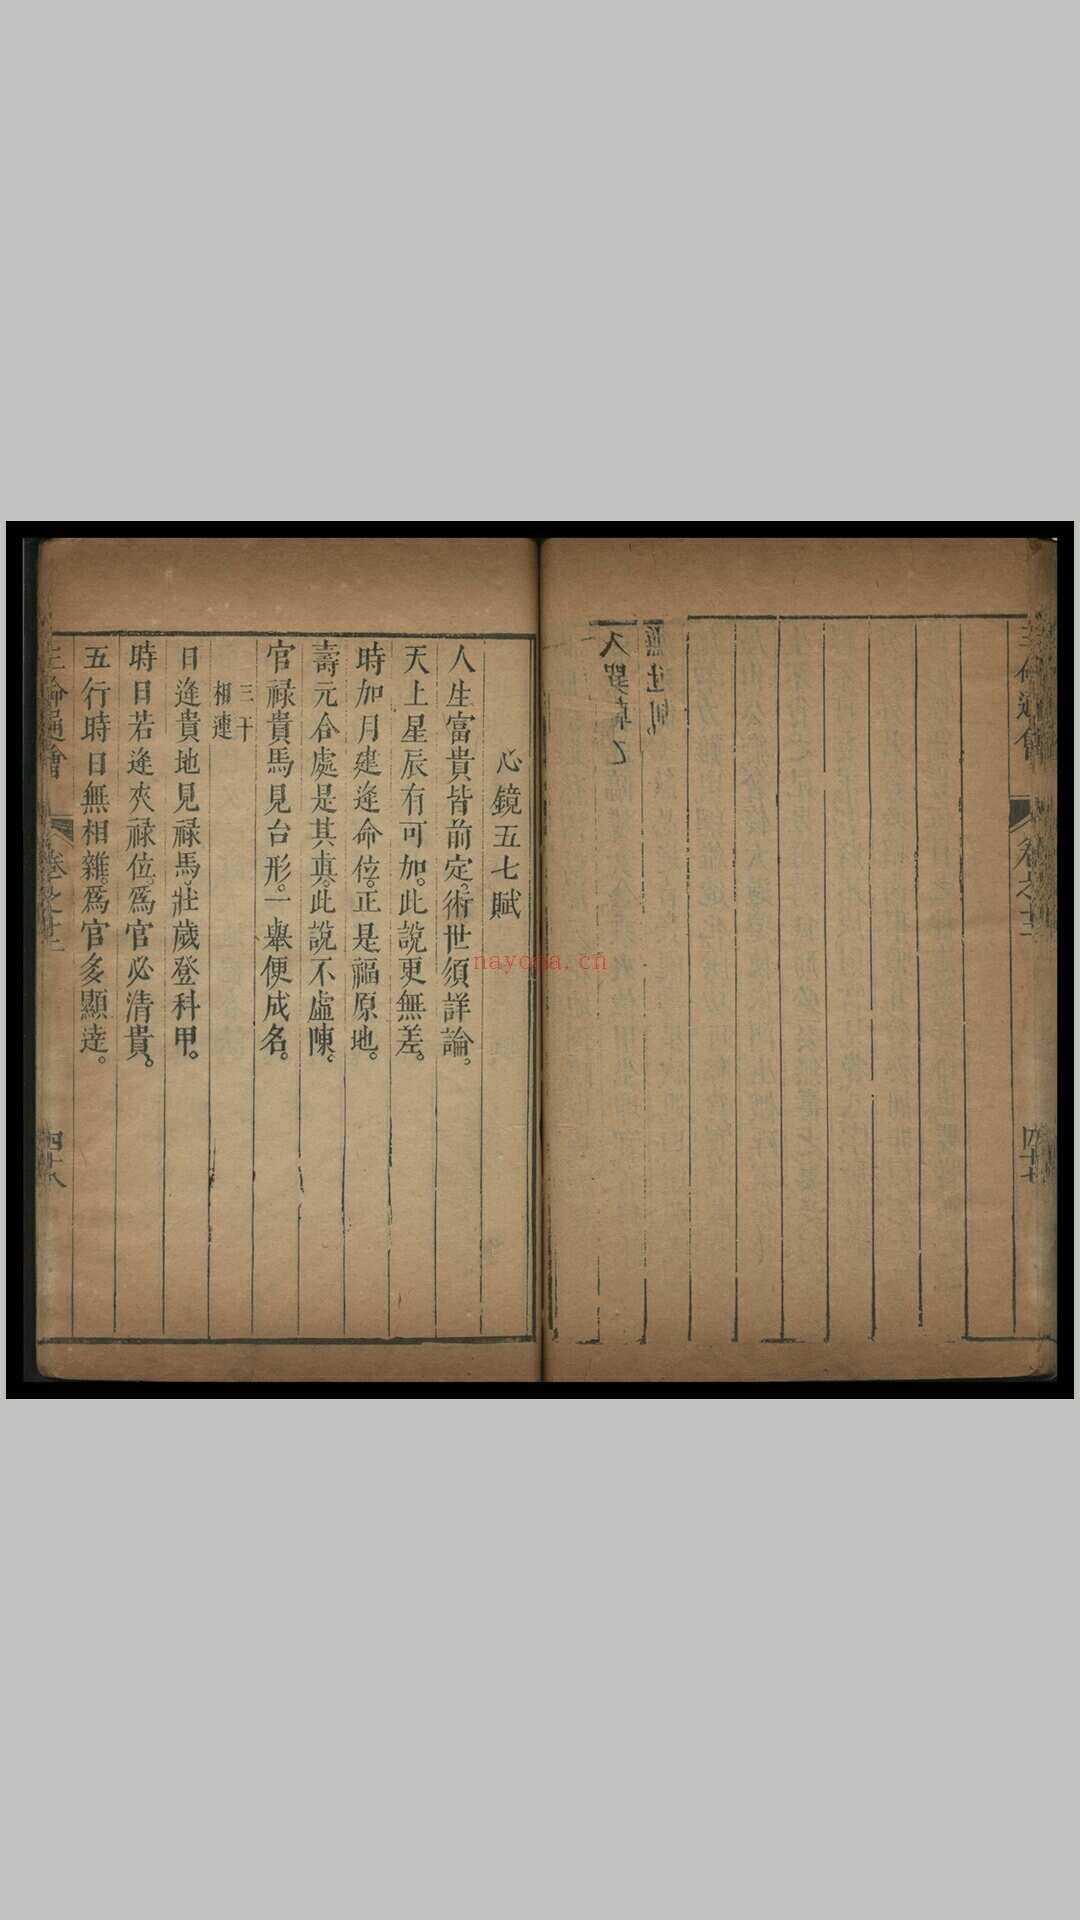 三命通會
卷之十二
四十七
無逆亂
入巽乾乙
心鏡五七賦
人生富貴皆前定。術世須詳論。
天上星辰有可加。此說更無差。
時加月建逢命位。正是福原地。
壽元合處是其真。此說不虛陳。
官祿貴馬見合形。一舉便成名。
三干
相連
日逢貴地見祿馬。壯歲登科甲。
時日若逢夾祿位。爲官必清貴。
五行時日無相雜。爲官多顯達。
三命通會
卷之十二
四十八
nayona.cn